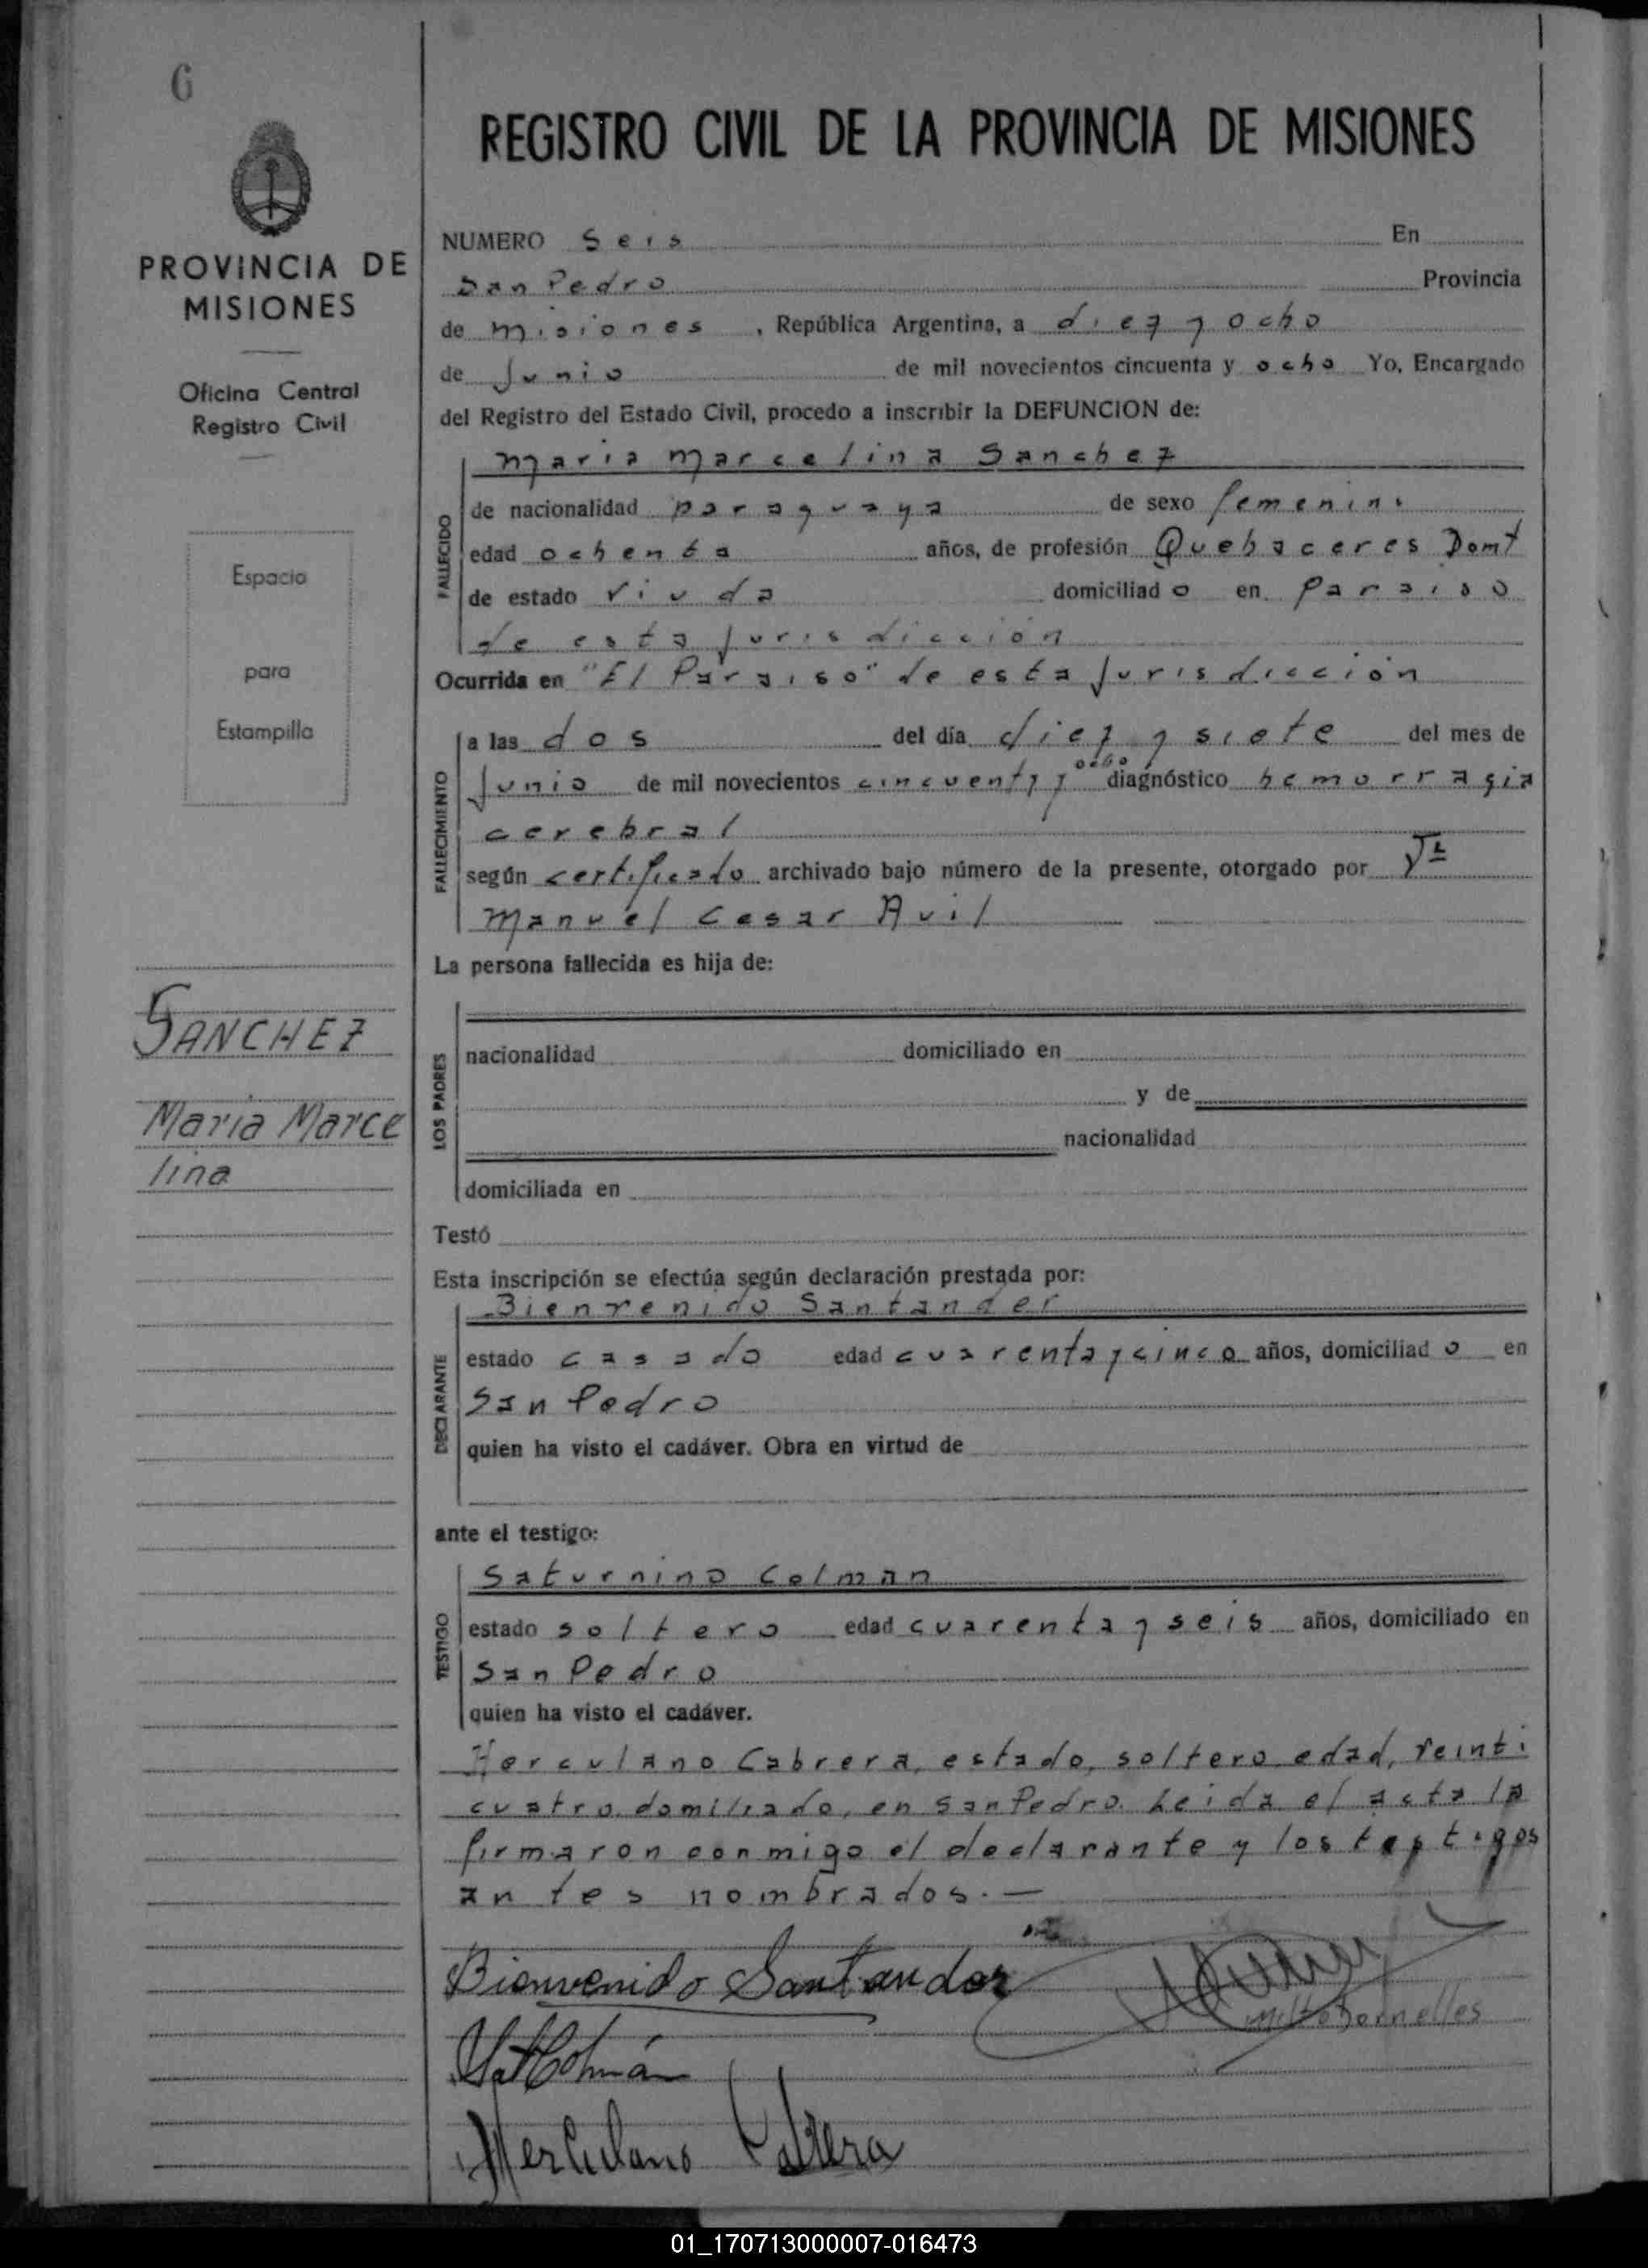 6
PROVINCIA DE
MISIONES
Oficina Central
Registro Civil
Espacio
para
Estampilla
SANCHEZ
Maria Marce
lina
REGISTRO CIVIL DE LA PROVINCIA DE MISIONES
NUMERO Seis En
San Pedro Provincia
de misiones , República Argentina, a diez y ocho
de Junio de mil novecientos cincuenta y ocho Yo, Encargado
del Registro del Estado Civil, procedo a inscribir la DEFUNCION de:
FALLECIDO
maria marcelina Sanchez
de nacionalidad paraguaya de sexo femenino
edad ochenta años, de profesión Quehaceres Domt
de estado viuda domiciliad o en Paraiso
de esta Jurisdicción
Ocurrida en "El Paraiso" de esta Jurisdicción
FALLECIMIENTO
a las dos del día diez y siete del mes de
Junio de mil novecientos cincuenta y ocho diagnóstico hemorragia
cerebral
según certificado archivado bajo número de la presente, otorgado por
manuel Cesar Avil
La persona fallecida es hija de:
LOS PADRES
nacionalidad domiciliado en
y de
nacionalidad
domiciliada en
Testó
Esta inscripción se efectúa según declaración prestada por:
DECLARANTE
Bienvenido Santander
estado casado edad cuarenta y cinco años, domiciliad o en
San Pedro
quien ha visto el cadáver. Obra en virtud de
ante el testigo:
TESTIGO
Saturnino Colman
estado soltero edad cuarenta y seis años, domiciliado en
San Pedro
quien ha visto el cadáver.
Herculano Cabrera, estado, soltero edad, veinti
cuatro domiliado, en San Pedro. Leida el acta la
firmaron conmigo el declarante y los testigos
antes nombrados.—
Bienvenido Santander
Sat Colmán
Herculano Cabrera
01_170713000007-016473